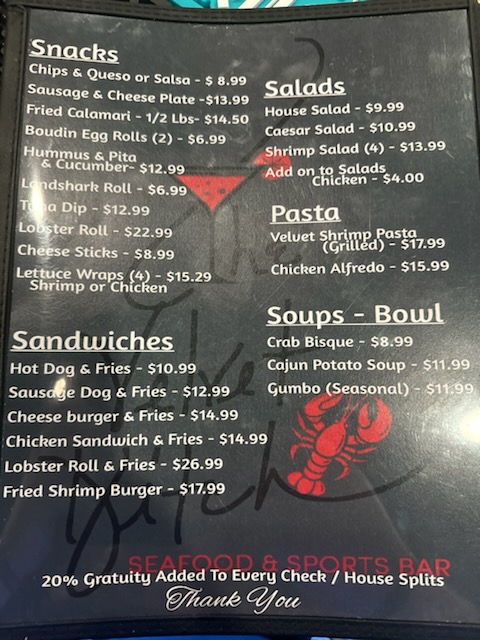 Snacks
Chips & Queso or Salsa - $ 8.99
Sausage & Cheese Plate -$13.99
Fried Calamari - 1/2 Lbs- $14.50
Boudin Egg Rolls (2) - $6.99
Hummus & Pita
& Cucumber- $12.99
Landshark Roll - $6.99
Tuna Dip - $12.99
Lobster Roll - $22.99
Cheese Sticks - $8.99
Lettuce Wraps (4) - $15.29
Shrimp or Chicken
Sandwiches
Hot Dog & Fries - $10.99
Sausage Dog & Fries - $12.99
Cheese burger & Fries - $14.99
Chicken Sandwich & Fries - $14.99
Lobster Roll & Fries - $26.99
Fried Shrimp Burger - $17.99
Salads
House Salad - $9.99
Caesar Salad - $10.99
Shrimp Salad (4) - $13.99
Add on to Salads
Chicken - $4.00
Pasta
Velvet Shrimp Pasta
(Grilled) - $17.99
Chicken Alfredo - $15.99
Soups - Bowl
Crab Bisque - $8.99
Cajun Potato Soup - $11.99
Gumbo (Seasonal) - $11.99
The
Velvet
Bitch
SEAFOOD & SPORTS BAR
20% Gratuity Added To Every Check / House Splits
Thank You